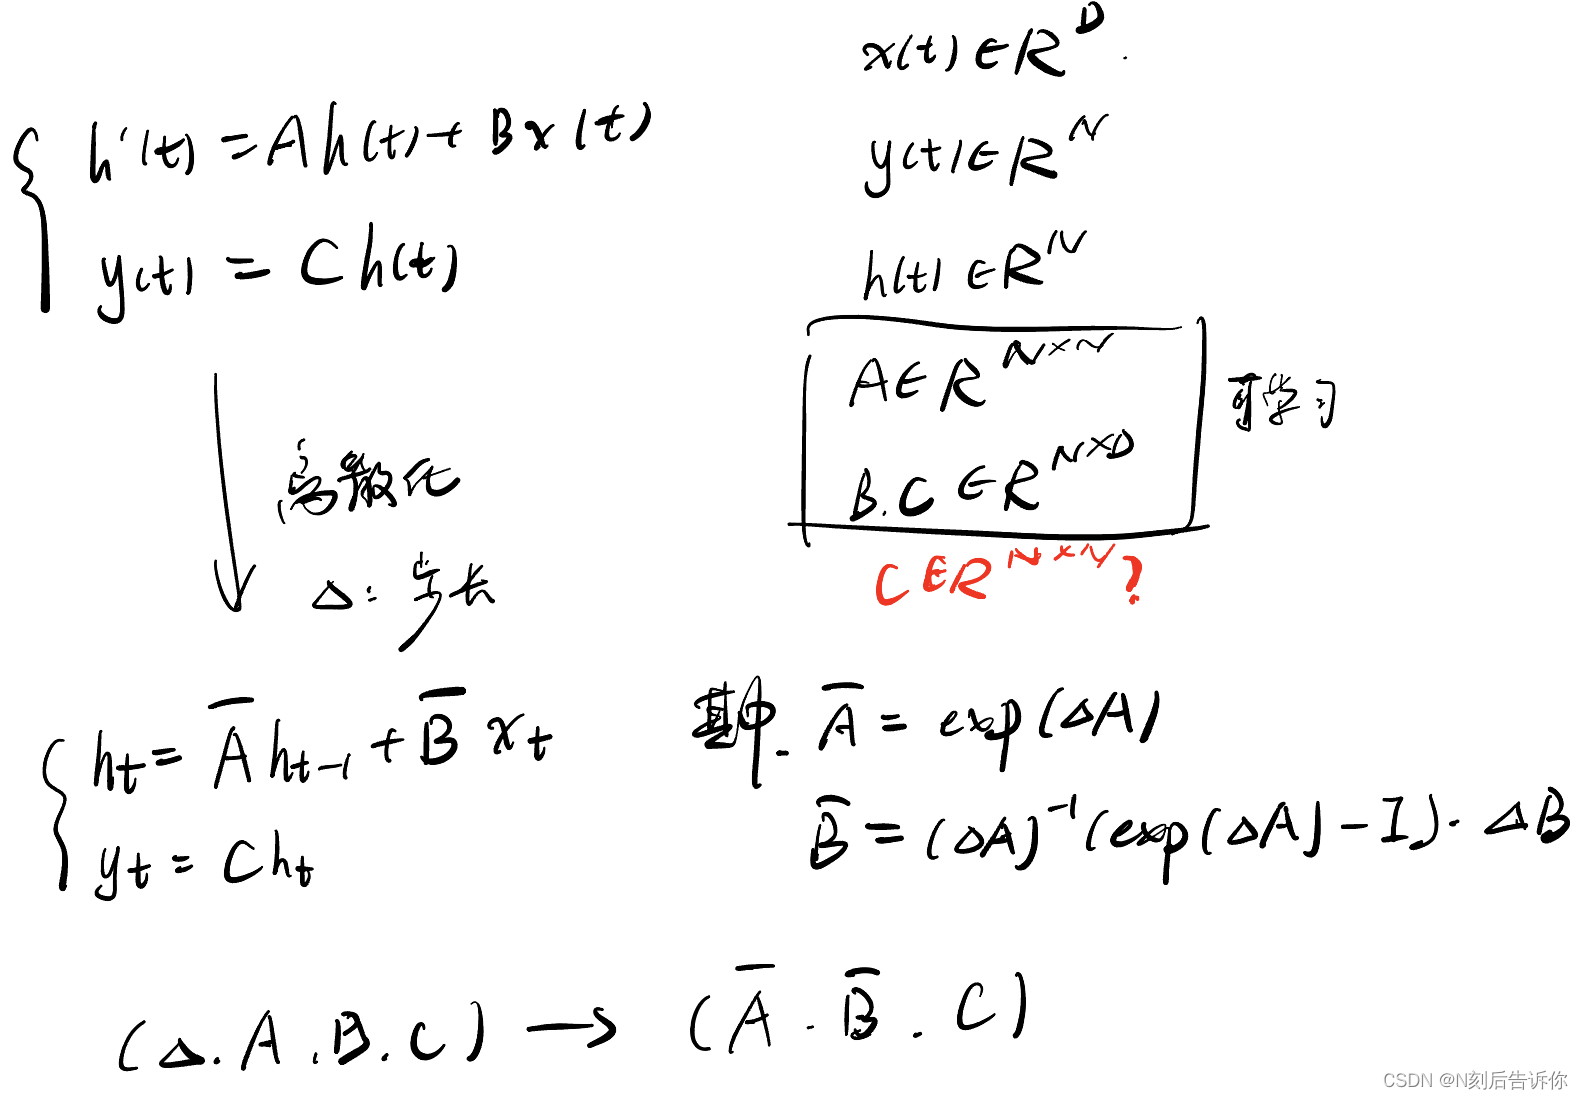 h'(t) = Ah(t) + Bx(t)
y(t) = Ch(t)
x(t) ∈ R^D
y(t) ∈ R^N
h(t) ∈ R^N
A ∈ R^{N×N}
B.C ∈ R^{N×D}
可学习
C ∈ R^{N×N}?
离散化
Δ: 步长
h_t = A̅ h_{t-1} + B̅ x_t
y_t = Ch_t
其中. A̅ = exp(ΔA)
B̅ = (ΔA)^{-1}(exp(ΔA) - I)· ΔB
(Δ.A.B.C) → (A̅.B̅.C)
CSDN @N刻后告诉你